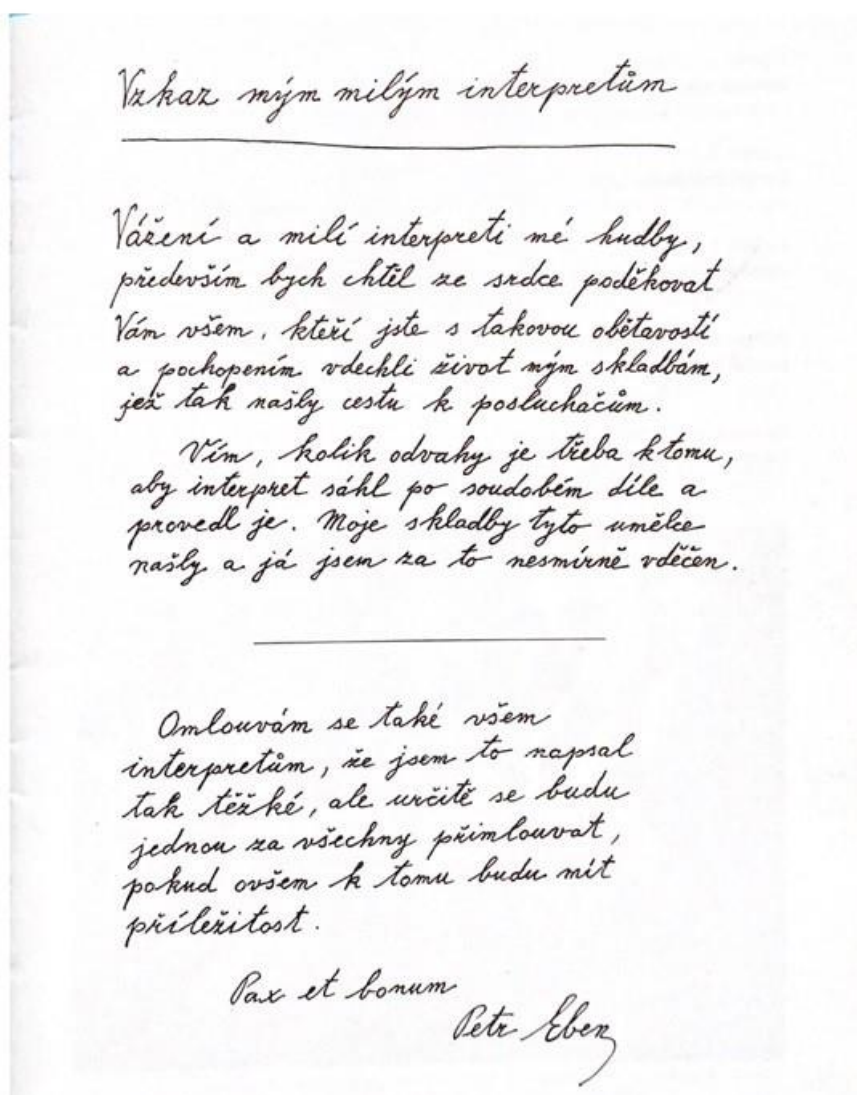 Vzkaz mým milým interpretům
Vážení a milí interpreti mé hudby,
především bych chtěl ze srdce poděkovat
Vám všem, kteří jste s takovou obětavostí
a pochopením vdechli život mým skladbám,
jež tak našly cestu k posluchačům.
Vím, kolik odvahy je třeba k tomu,
aby interpret sáhl po soudobém díle a
provedl je. Moje skladby tyto umělce
našly a já jsem za to nesmírně vděčen.
Omlouvám se také všem
interpretům, že jsem to napsal
tak těžké, ale určitě se budu
jednou za všechny přimlouvat,
pokud ovšem k tomu budu mít
příležitost.
Pax et bonum
Petr Eben